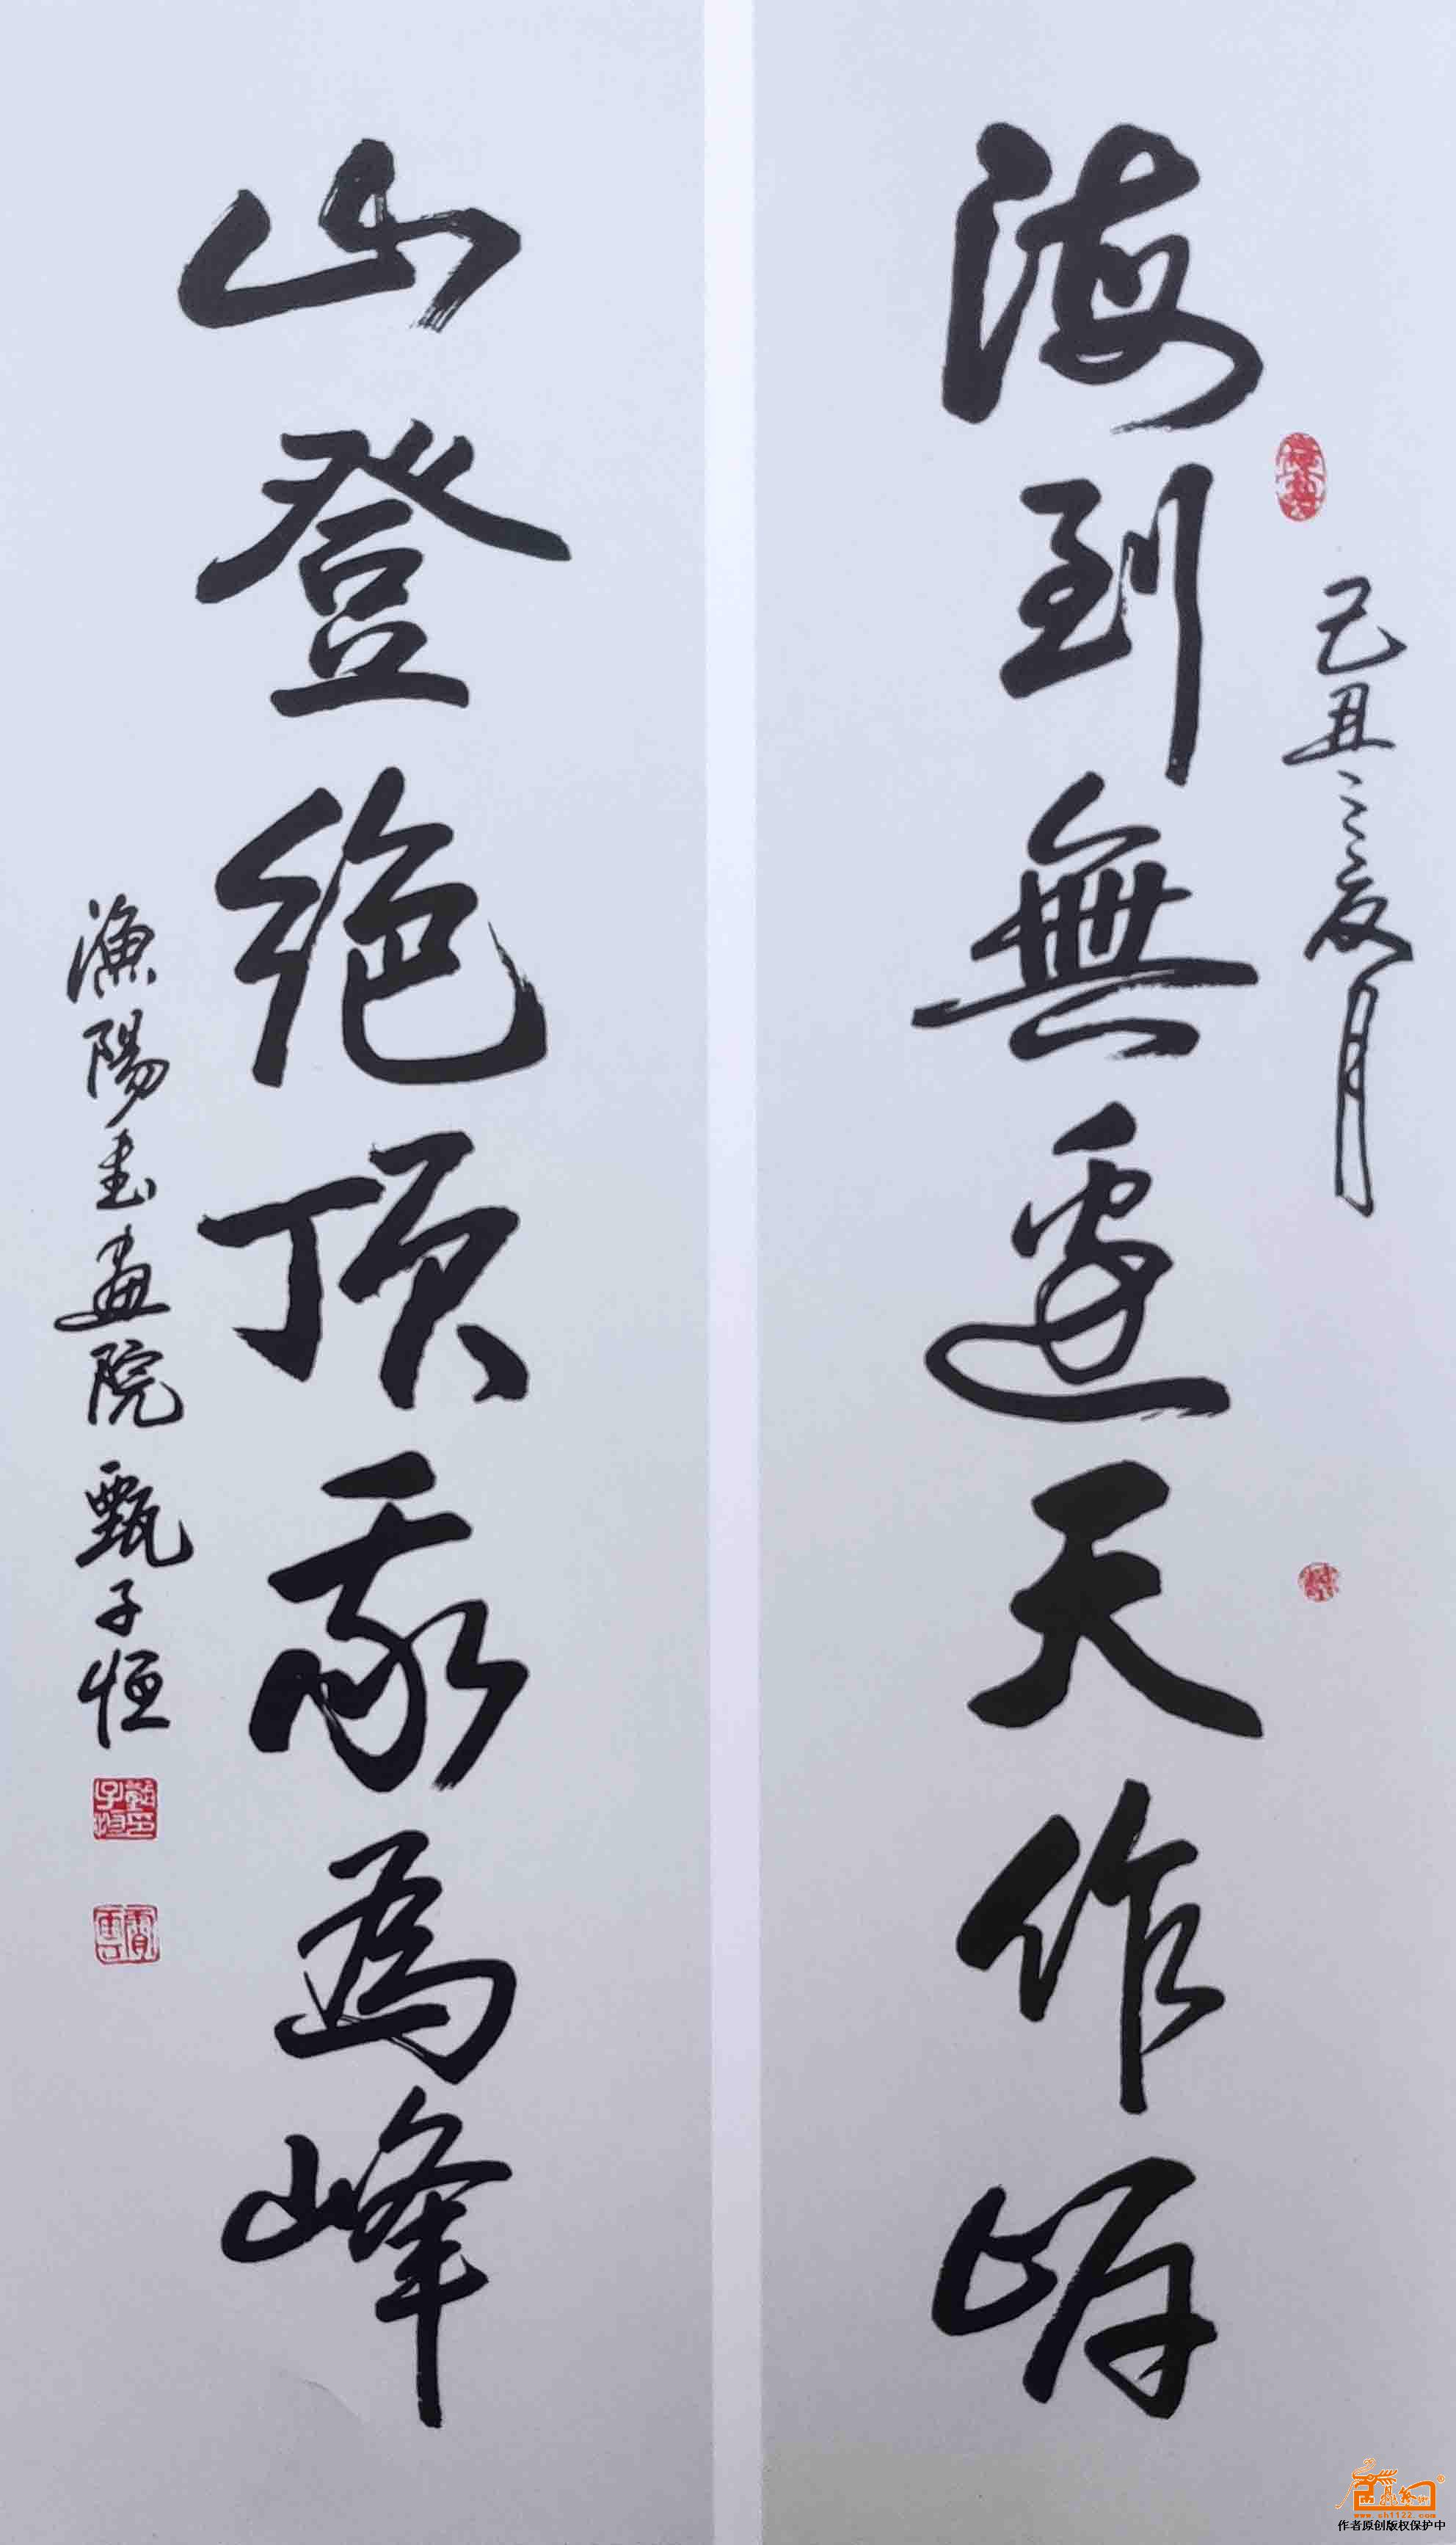 己丑之夏月
海到無邊天作岸
山登絶頂我為峰
漁陽书畫院 甄子恒
www.sh1122.com
作者原创版权保护中